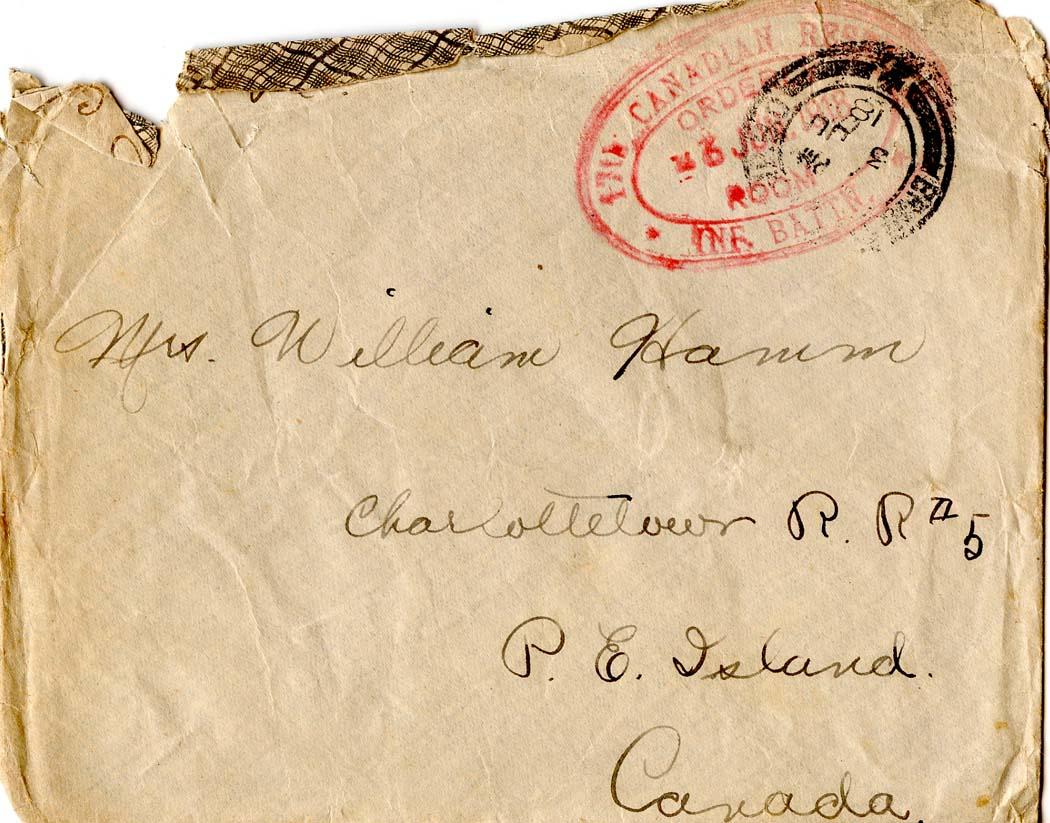 17th CANADIAN RES
ORDERLY
6 JUN 1918
ROOM
INF. BATTN.
Mrs. William Hamm
Charlottetown R. R #5
P. E. Island.
Canada.